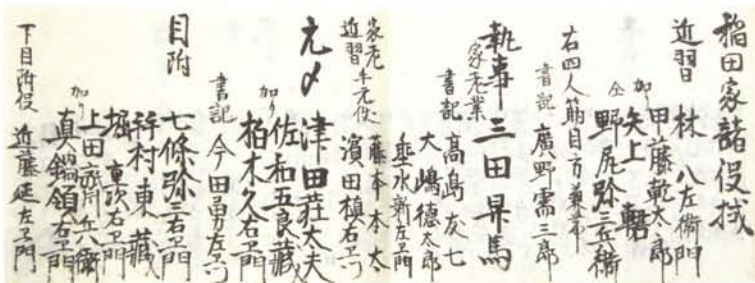 稲田家諸役拭
近習 林 八左衛門
加り 甲藤乾太郎
矢上 轄
仝 野尻弥三兵衛
右四人筋目方兼帯
書記 廣野需三郎
執事 三田昇馬
家老業
書記 高嶋友七
大嶋德太郎
垂水新左ヱ門
家老手元役
近習 藤本本太
濱田槙右ヱ門
元〆 津田荘太夫
佐和五良藏
加り 柏木久右ヱ門
書記 今田勇左ヱ門
目附 七條弥三右ヱ門
梓村東藏
堀 重次右ヱ門
上田 兵八衛
加り 真鍋領右ヱ門
下目附役 近藤延左ヱ門